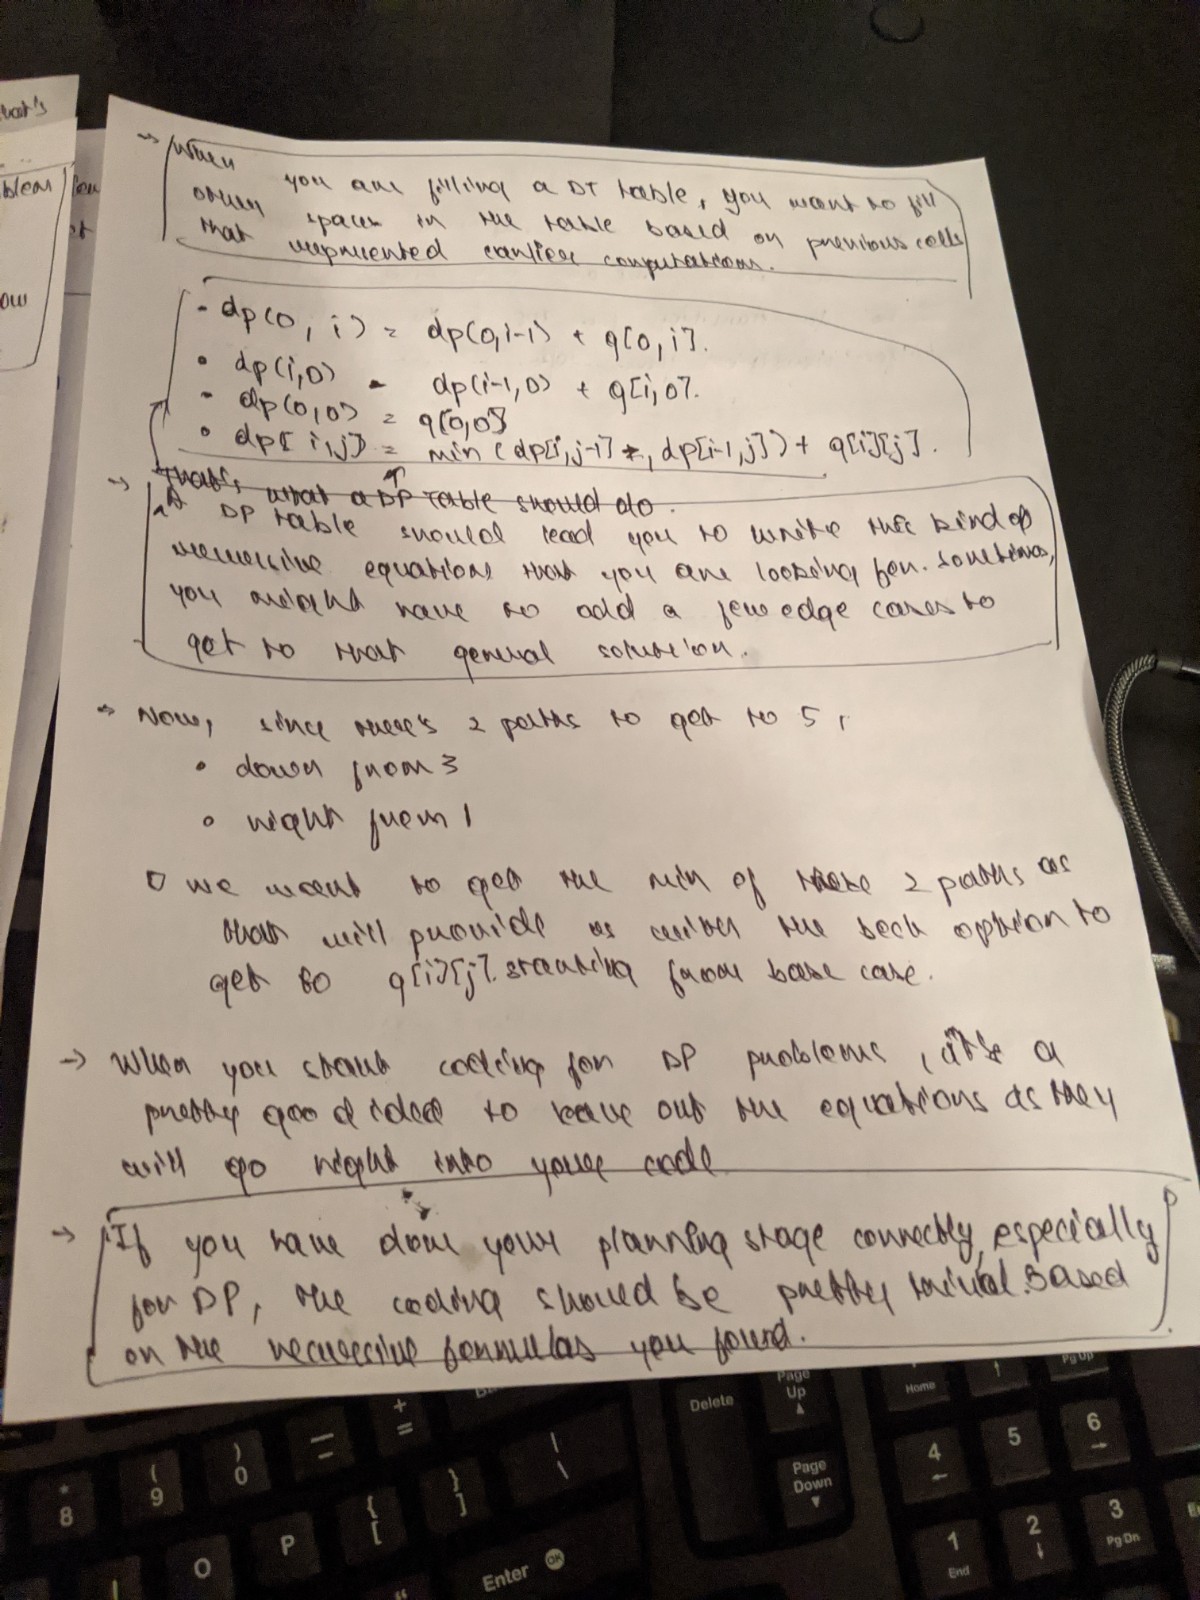 that's
blem
for
ow
→ When
you are filling a DT table, you want to fill
other spaces in the table based on previous cells
that represented earlier computations.
- dp(0, i) = dp(0,i-1) + g[0,i].
• dp(i,0) = dp(i-1,0) + g[i,0].
- dp(0,0) = g[0,0]
• dp[i,j] = min(dp[i,j-1], dp[i-1,j]) + g[i][j].
→ That's what a DP table should do.
A DP table should lead you to write the kind of
recursive equations that you are looking for. Sometimes,
you might have to add a few edge cases to
get to that general solution.
→ Now, since there's 2 paths to get to 5,
• down from 3
• right from 1
□ we want to get the min of these 2 paths as
that will provide us with the best option to
get to g[i][j]. starting from base case.
→ When you start coding for DP problems, it's a
pretty good idea to leave out the equations as they
will go right into your code
→ If you have done your planning stage correctly, especially
for DP, the coding should be pretty trivial. Based
on the recursive formulas you found.
Delete
Page
Up
Home
Pg Up
+
=
_
|
\
)
0
(
9
*
8
{
[
}
]
P
O
Enter OK
Page
Down
4
5
6
1
End
2
3
Pg Dn